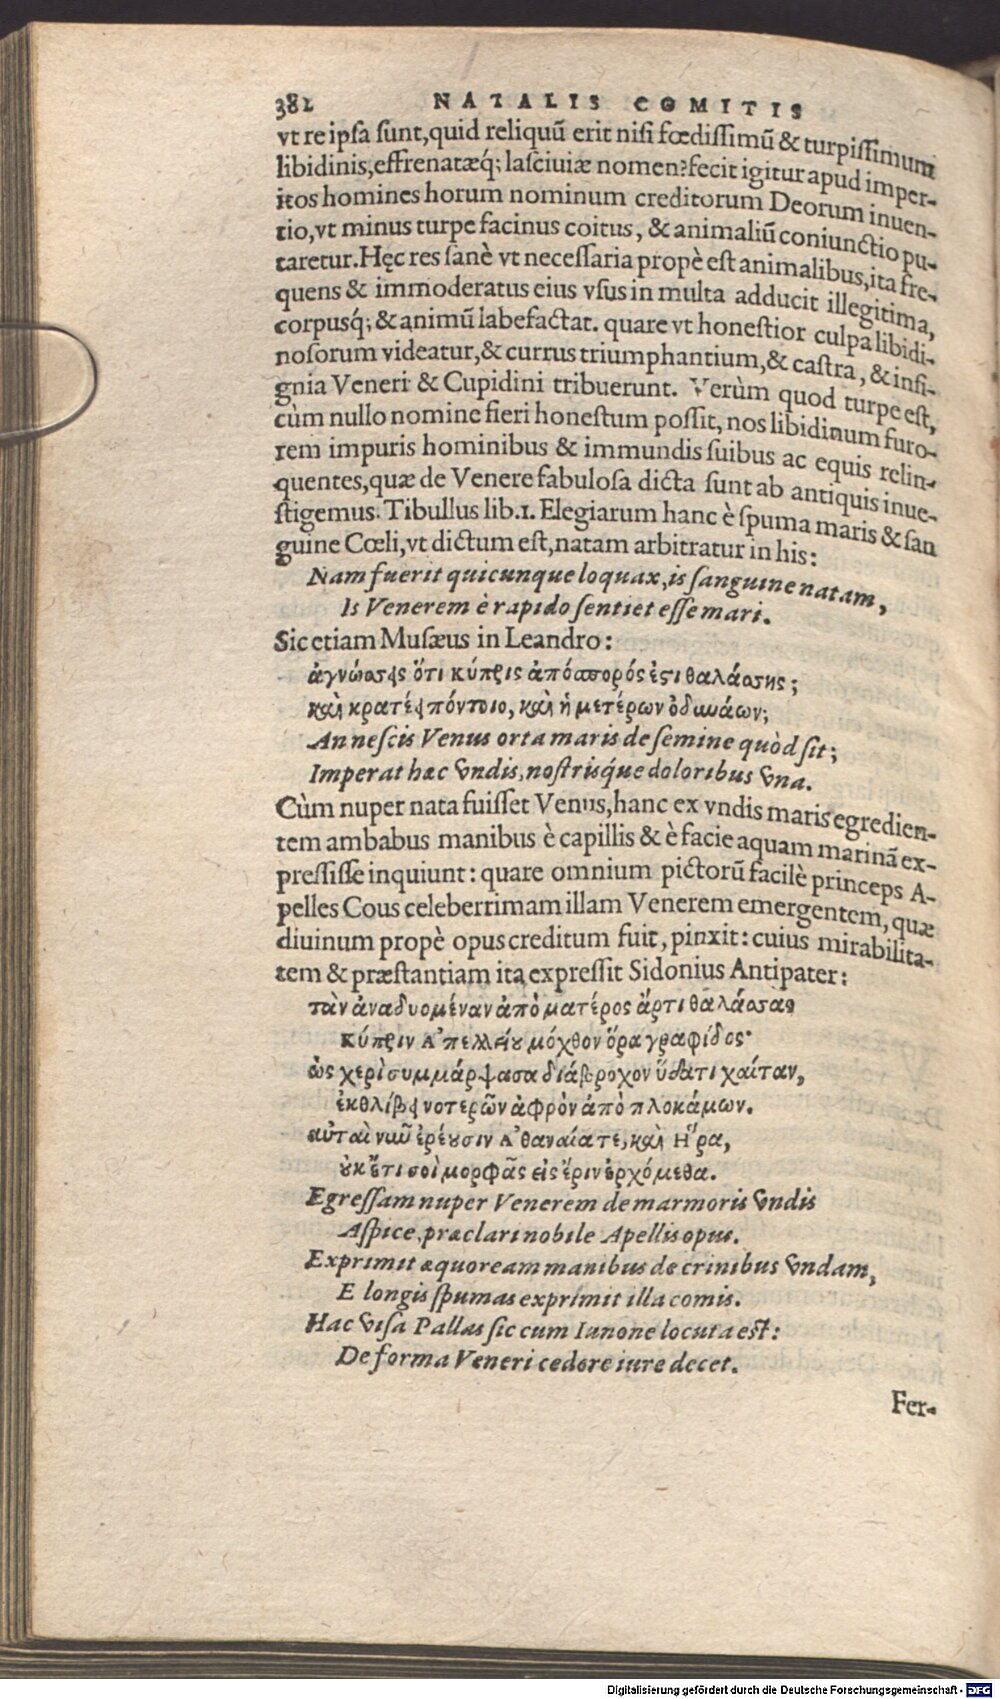 382 NATALIS COMITIS
vt re ipsa sunt, quid reliquũ erit nisi fœdissimũ & turpissimum
libidinis, effrenatæq́; lasciuiæ nomen? fecit igitur apud imper-
itos homines horum nominum creditorum Deorum inuen-
tio, vt minus turpe facinus coitus, & animaliũ coniunctio pu-
taretur. Hęc res sanè vt necessaria propè est animalibus, ita fre-
quens & immoderatus eius vsus in multa adducit illegitima,
corpusq́; & animũ labefactat. quare vt honestior culpa libidi-
nosorum videatur, & currus triumphantium, & castra, & insi-
gnia Veneri & Cupidini tribuerunt. Verùm quod turpe est,
cùm nullo nomine fieri honestum possit, nos libidinum furo-
rem impuris hominibus & immundis suibus ac equis relin-
quentes, quæ de Venere fabulosa dicta sunt ab antiquis inue-
stigemus. Tibullus lib. 1. Elegiarum hanc è spuma maris & san
guine Cœli, vt dictum est, natam arbitratur in his:
Nam fuerit quicunque loquax, is sanguine natam,
Is Venerem è rapido sentiet esse mari.
Sic etiam Musæus in Leandro:
ἀγνώσσεις ὅτι κύπρις ἀπόσπορός ἐστι θαλάσσης;
καὶ κρατέει πόντοιο, καὶ ἡμετέρων ὀδυνάων;
An nescis Venus orta maris de semine quòd sit;
Imperat hæc vndis, nostrisq́ue doloribus vna.
Cùm nuper nata fuisset Venus, hanc ex vndis maris egredien-
tem ambabus manibus è capillis & è facie aquam marinã ex-
pressisse inquiunt: quare omnium pictorũ facilè princeps A-
pelles Cous celeberrimam illam Venerem emergentem, quæ
diuinum propè opus creditum fuit, pinxit: cuius mirabilita-
tem & præstantiam ita expressit Sidonius Antipater:
τὰν ἀναδυομέναν ἀπὸ ματέρος ἄρτι θαλάσσας
κύπριν Ἀπελλείου μόχθον ὅρα γραφίδος·
ὡς χερὶ συμμάρψασα διάβροχον ὕδατι χαίταν,
ἐκθλίβει νοτερῶν ἀφρὸν ἀπὸ πλοκάμων.
αὐταὶ νῦν ἐρέουσιν Ἀθαναία τε, καὶ Ἥρα,
οὐκ ἔτι σοὶ μορφᾶς εἰς ἔριν ἐρχόμεθα.
Egressam nuper Venerem de marmoris vndis
Aspice, præclari nobile Apellis opus.
Exprimit æquoream manibus de crinibus vndam,
E longis spumas exprimit illa comis.
Hac visa Pallas sic cum Iunone locuta est:
De forma Veneri cedere iure decet.
Fer-
Digitalisierung gefördert durch die Deutsche Forschungsgemeinschaft - DFG